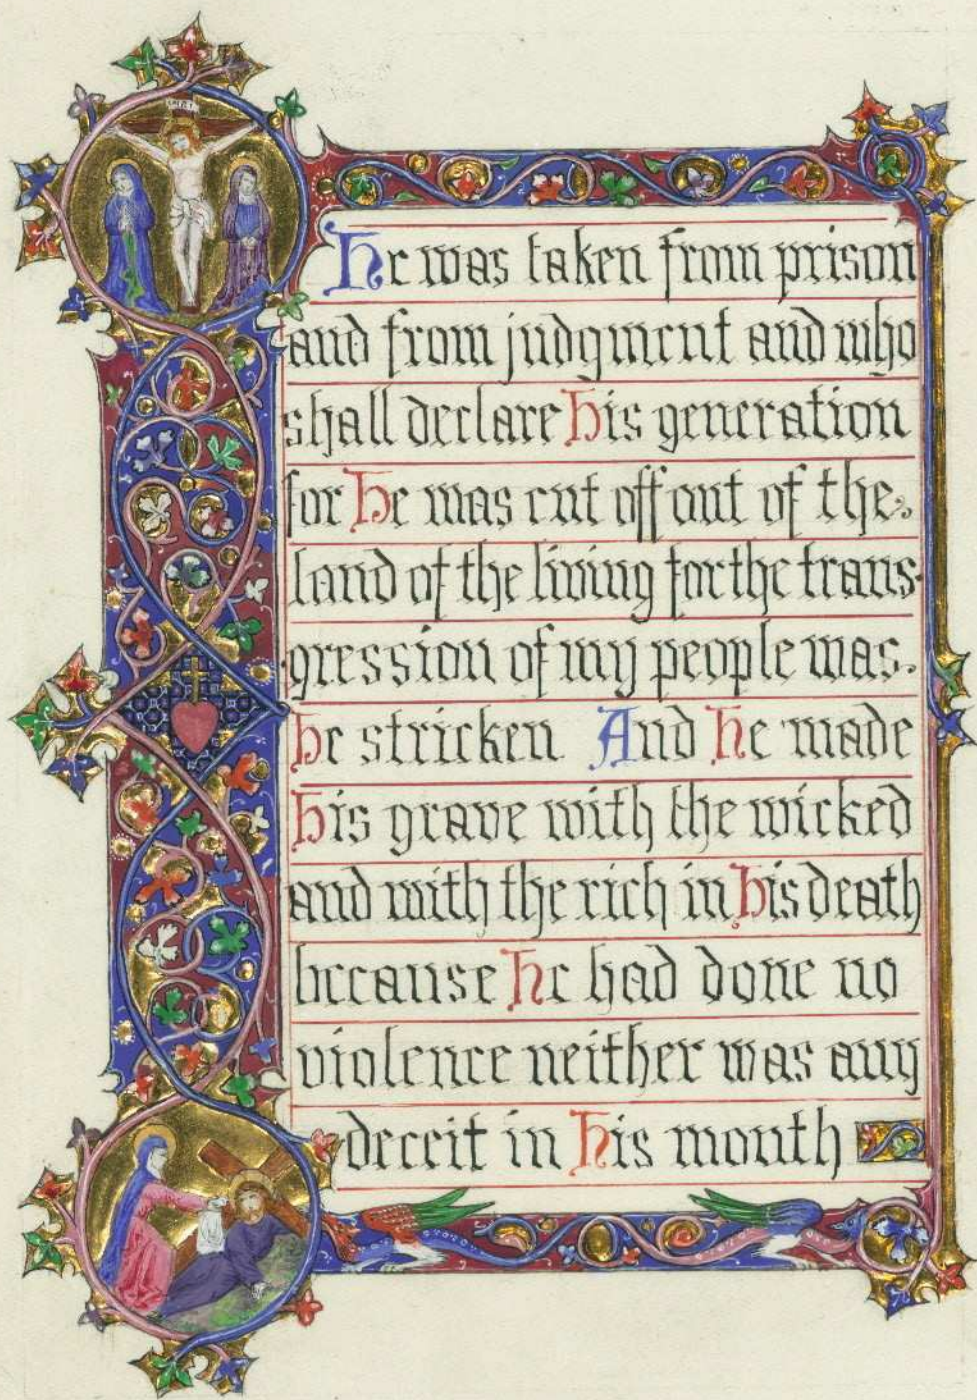 INRI
He was taken from prison
and from judgment and who
shall declare His generation
for He was cut off out of the
land of the living for the trans
gression of my people was.
He stricken And He made
His grave with the wicked
and with the rich in His death
because He had done no
violence neither was any
deceit in His mouth